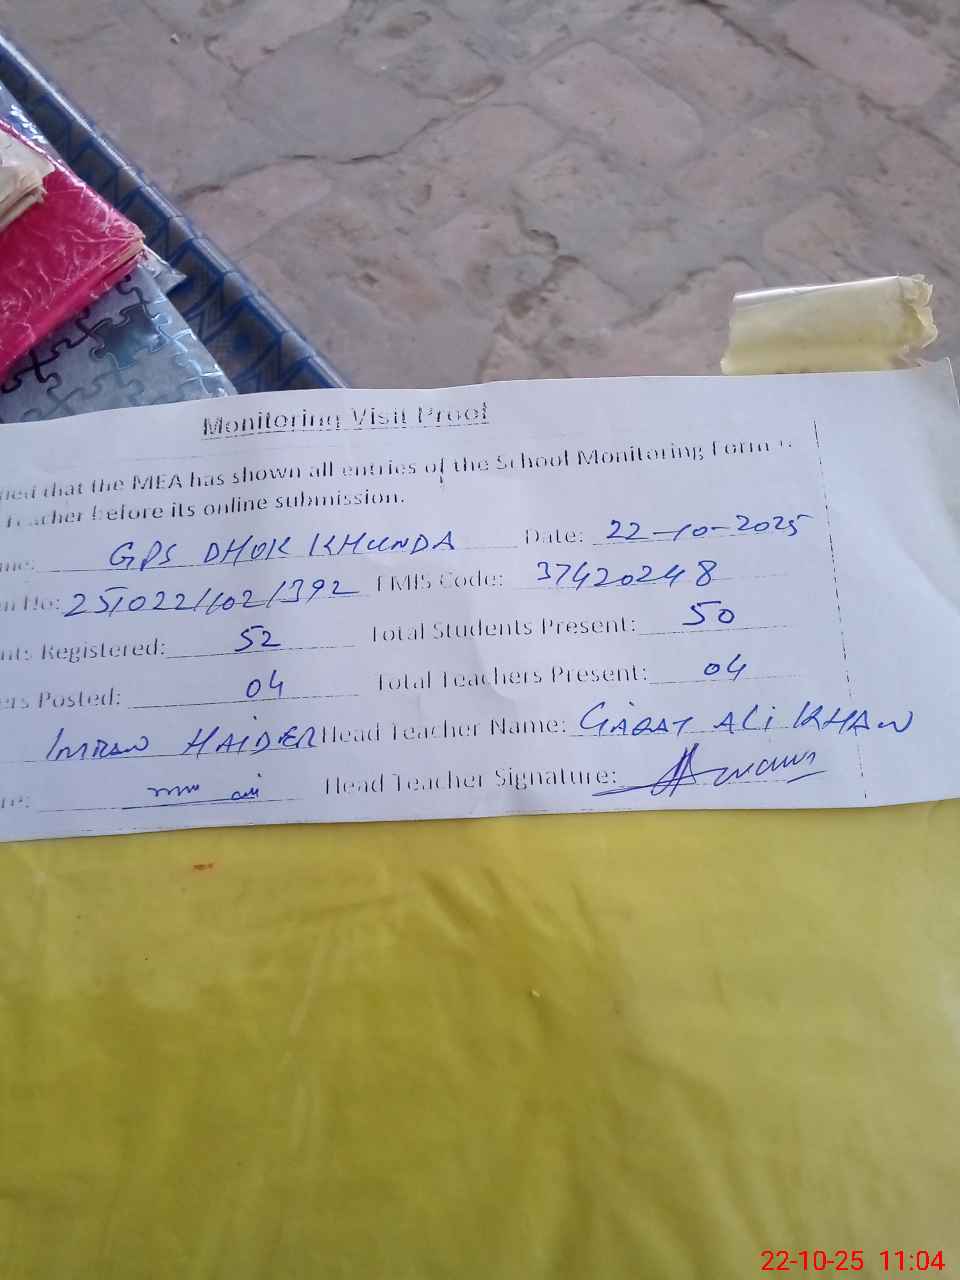 Monitoring Visit Proof
that the MEA has shown all entries of the School Monitoring Form
Teacher before its online submission.
GPS DHOK KHUNDA Date: 22-10-2025
No: 251022/102/392 EMIS Code: 37420248
Registered: 52 Total Students Present: 50
ers Posted: 04 Total Teachers Present: 04
IMRAN HAIDER Head Teacher Name: ALI KHAN
Head Teacher Signature:
22-10-25 11:04